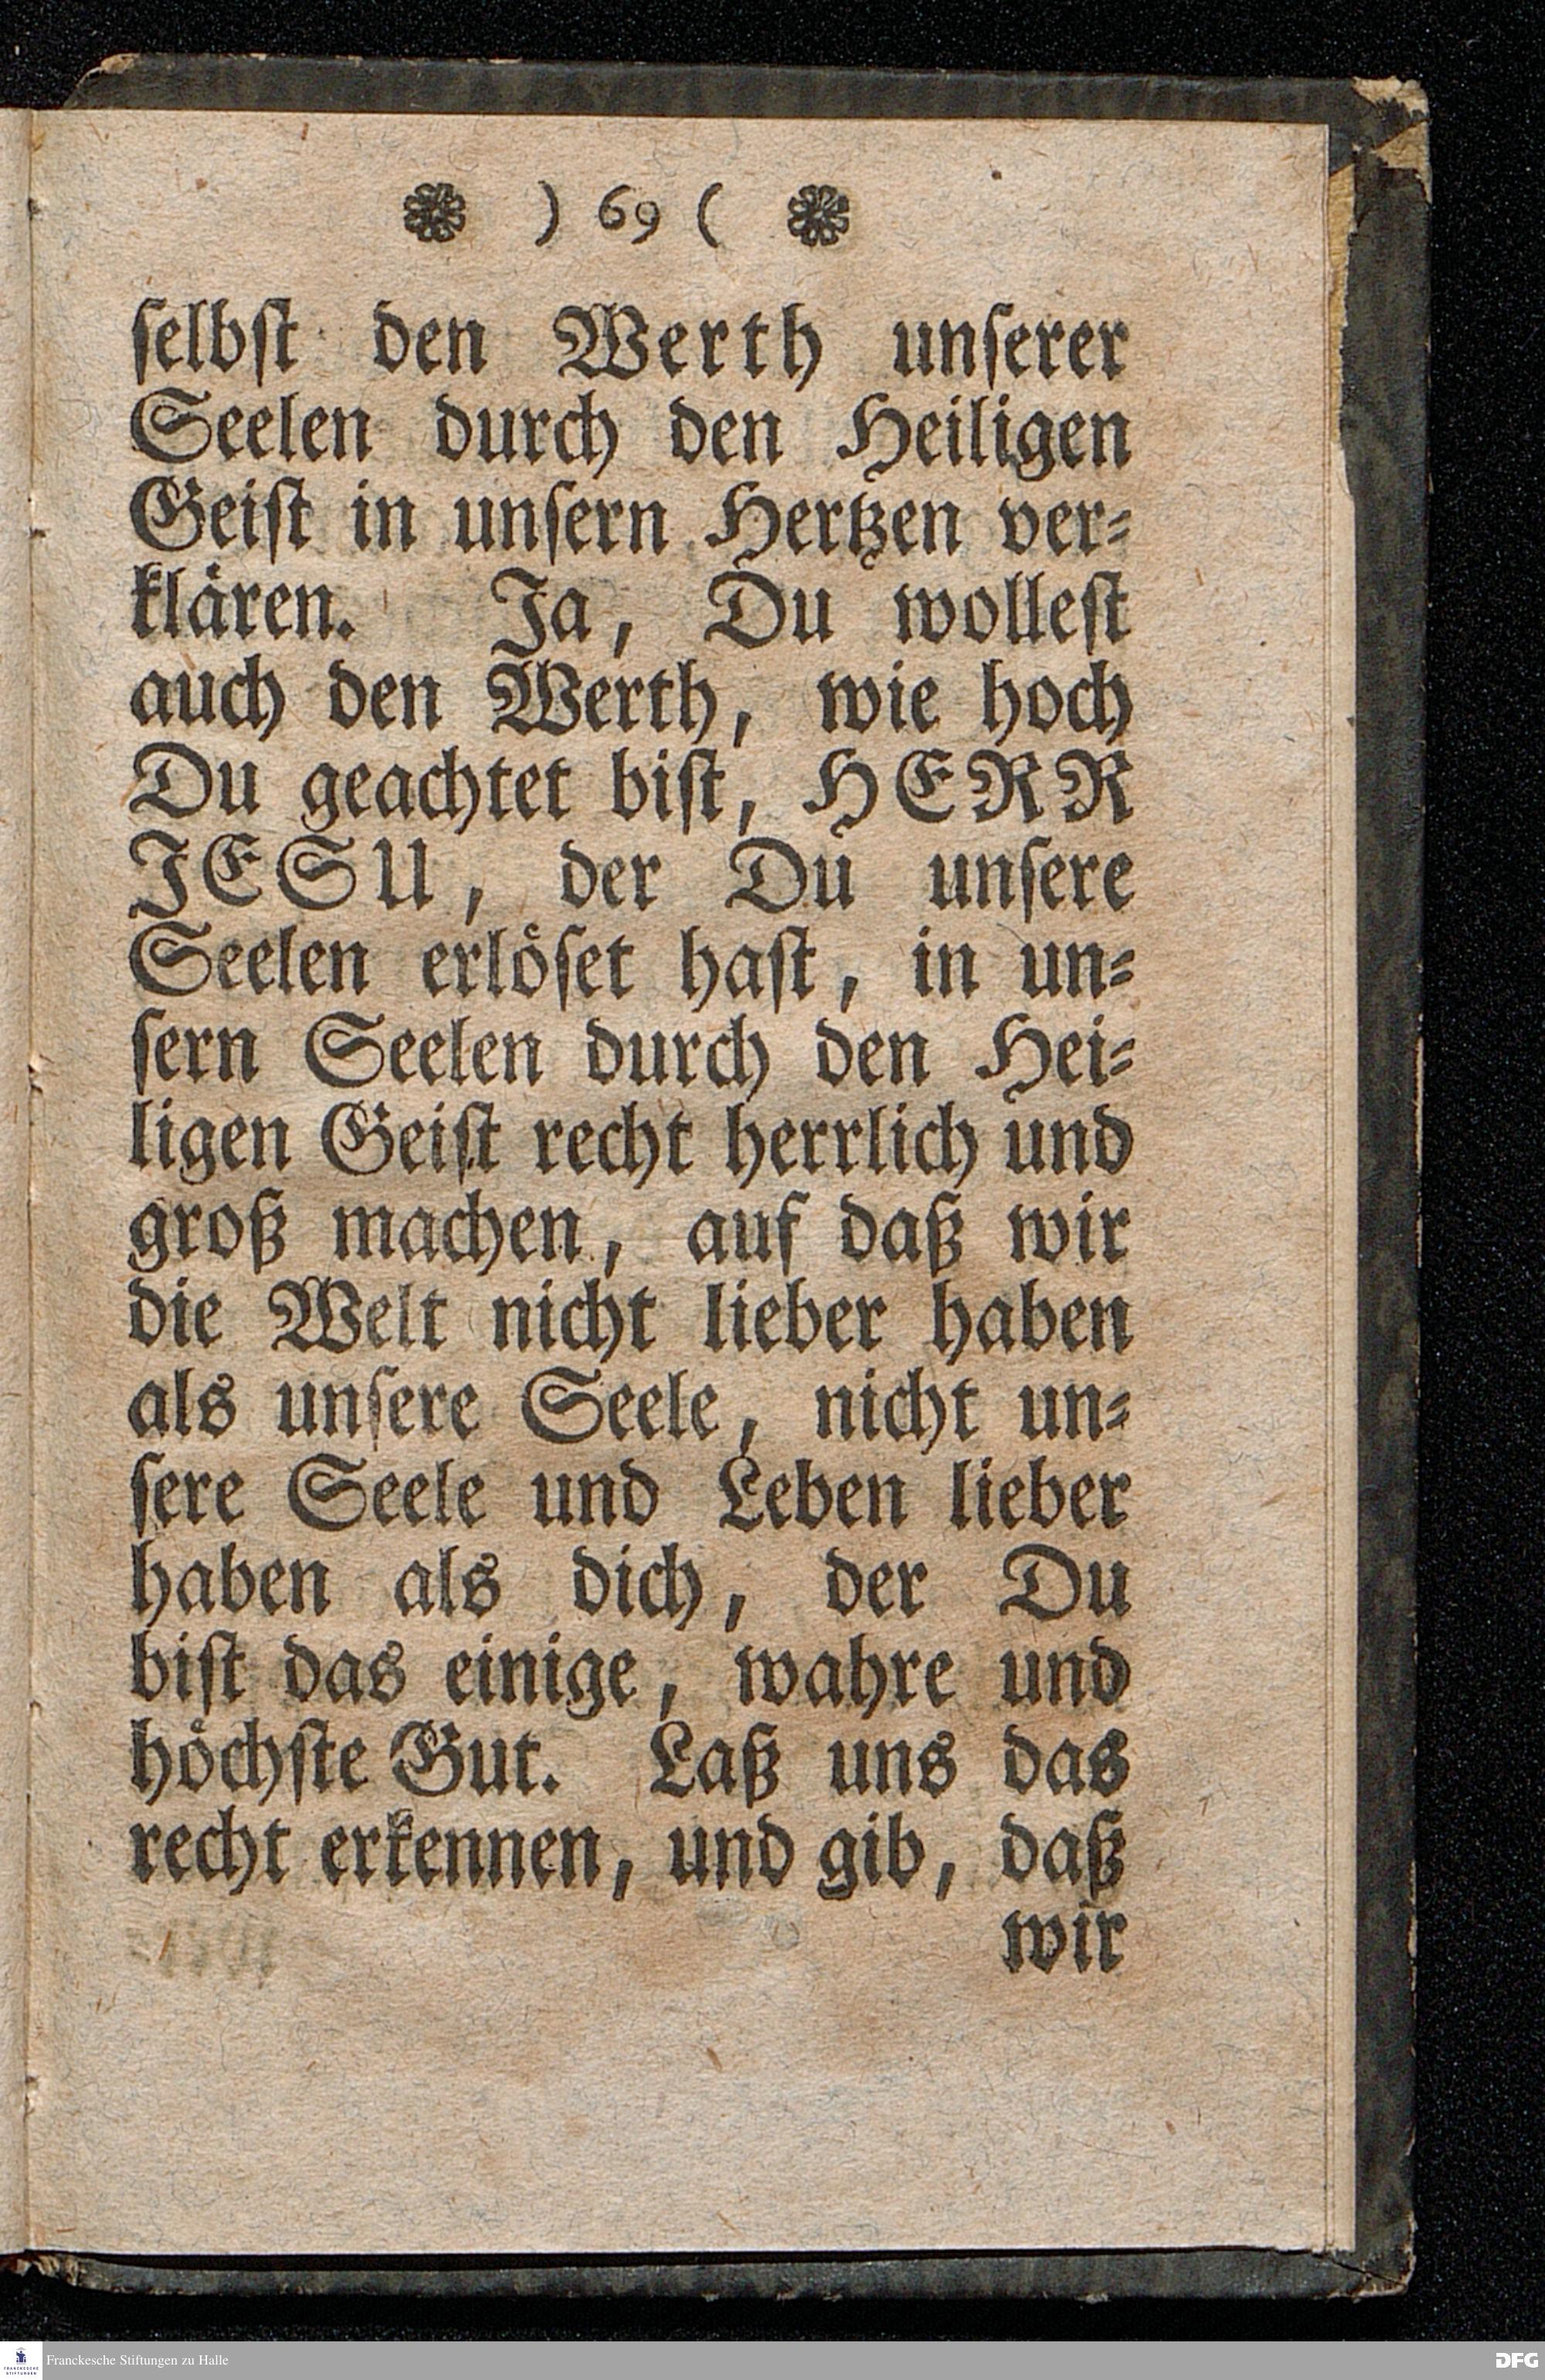 ) 69 (
ſelbſt den Werth unſerer
Seelen durch den Heiligen
Geiſt in unſern Hertzen ver⸗
klaͤren. Ja, Du wolleſt
auch den Werth, wie hoch
Du geachtet biſt, HERR
JESU, der Du unſere
Seelen erloͤſet haſt, in un⸗
ſern Seelen durch den Hei⸗
ligen Geiſt recht herrlich und
groß machen, auf daß wir
die Welt nicht lieber haben
als unſere Seele, nicht un⸗
ſere Seele und Leben lieber
haben als dich, der Du
biſt das einige, wahre und
hoͤchſte Gut. Laß uns das
recht erkennen, und gib, daß
wir
FRANCKESCHE
STIFTUNGEN
Franckesche Stiftungen zu Halle
DFG